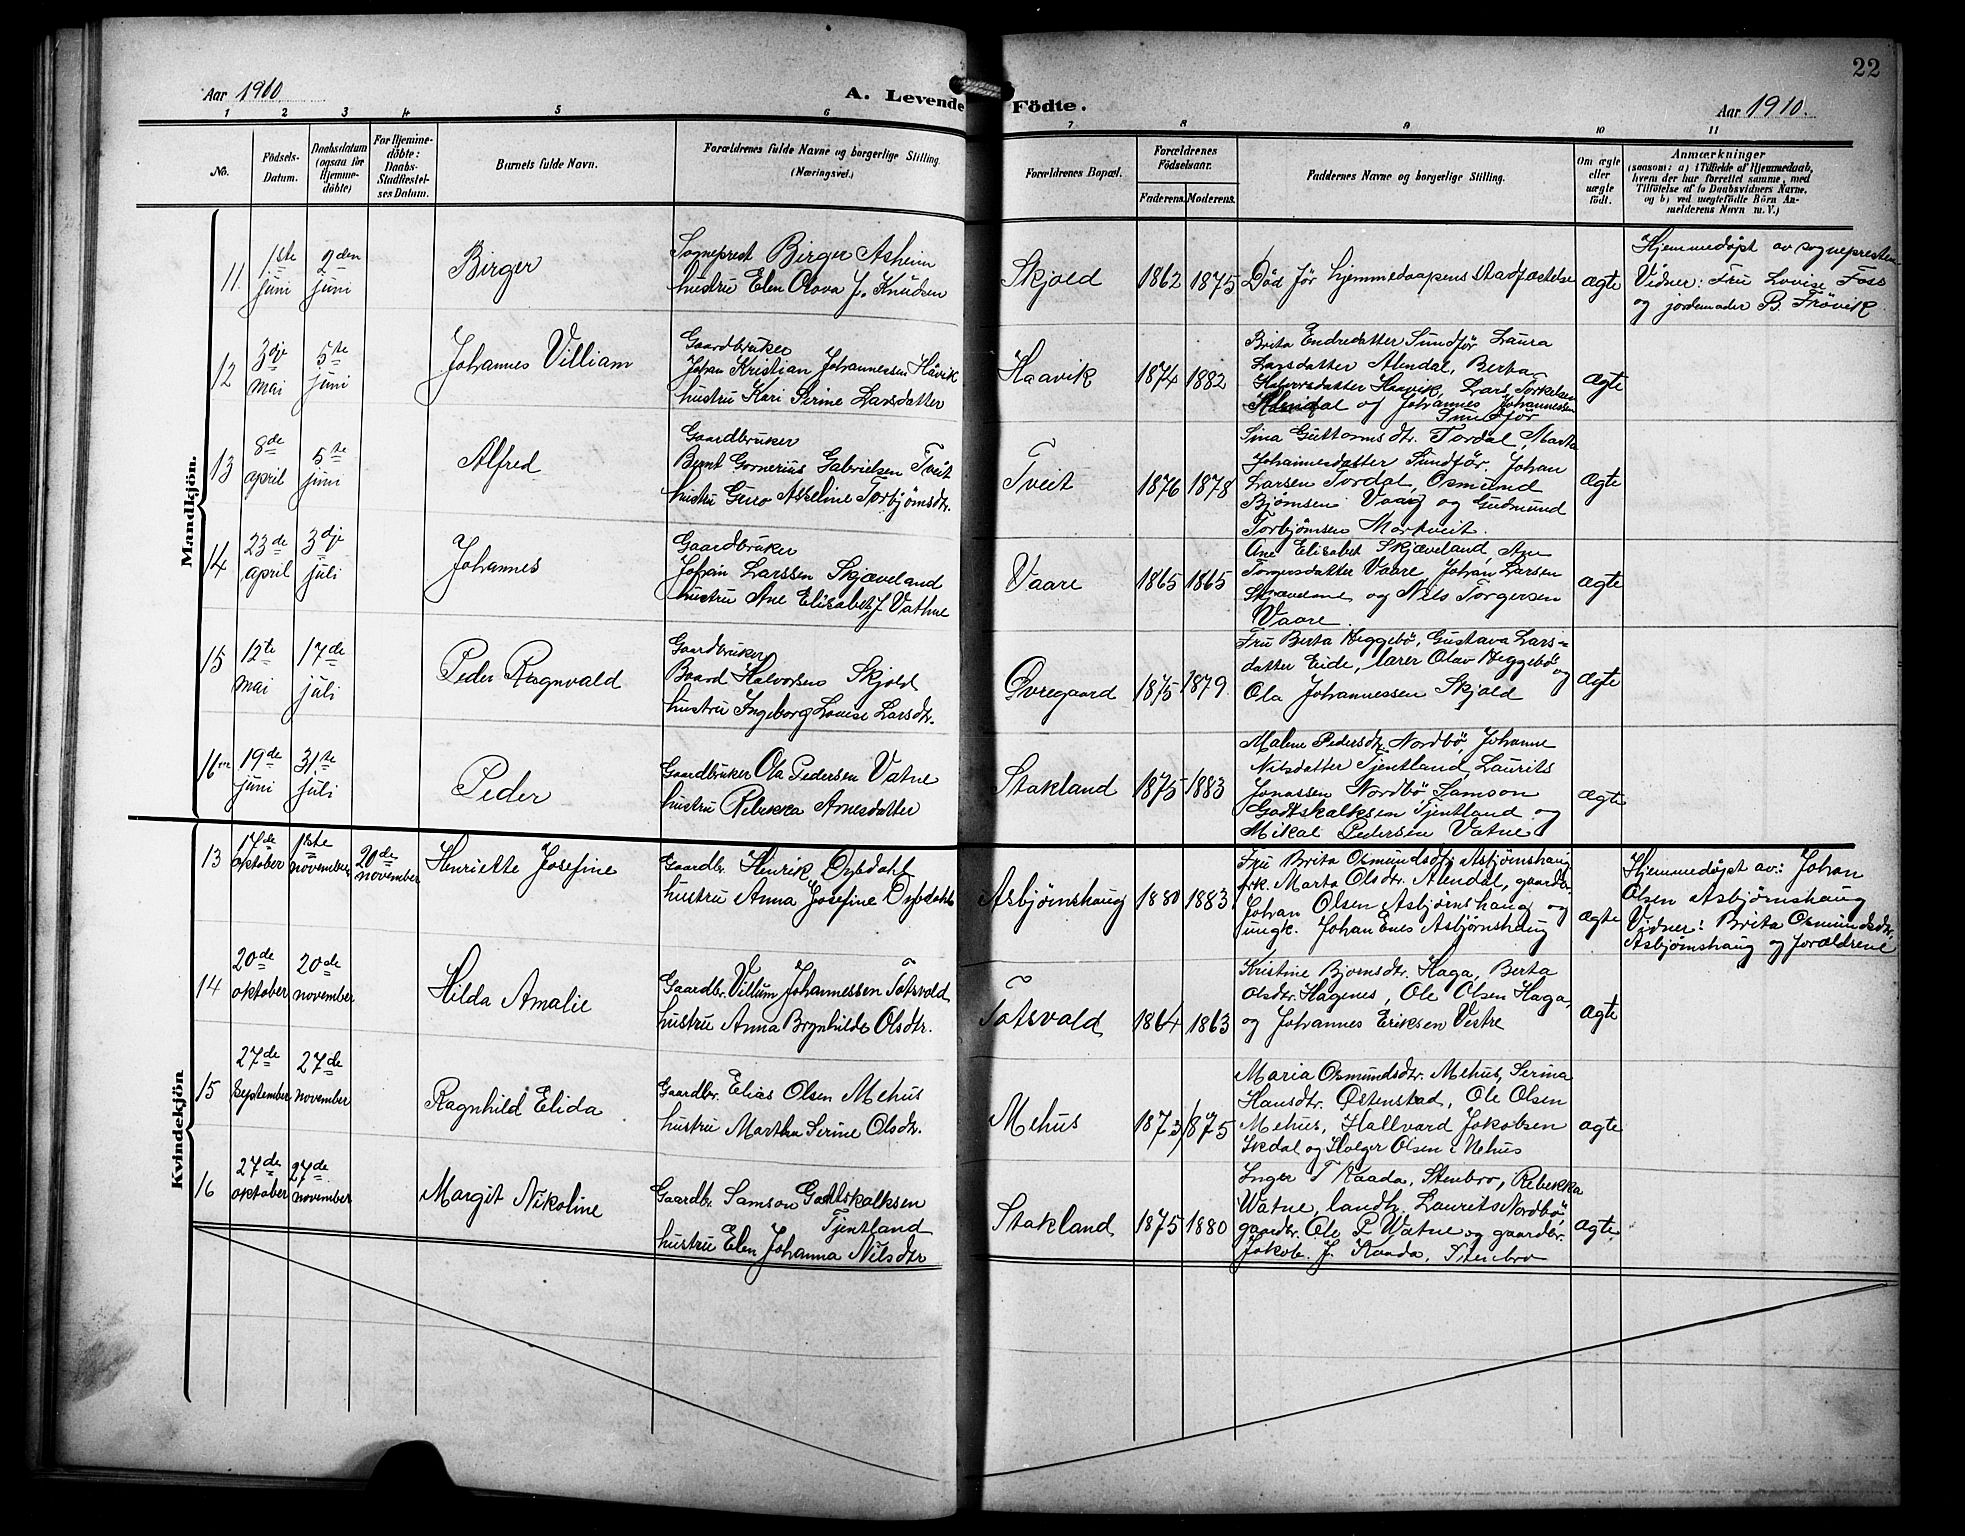 22
Aar 1910
A. Levende Födte.
Aar 1910.
1 2 3 4 5 6 7 8 9 10 11
No.
Födsels-
Datum.
Daabsdatum
(ogsaa for
Hjemme-
döbte)
For Hjemme-
döbte:
Daabs-
Stadfæstel-
ses Datum.
Barnets fulde Navn.
Forældrenes fulde Navne og borgerlige Stilling.
(Næringsvei.)
Forældrenes Bopæl.
Forældrenes
Födselsaar.
Faderens.
Moderens.
Faddernes Navne og borgerlige Stilling.
Om ægte
eller
uægte
födt.
Anmærkninger
(saasom: a) i Tilfælde af Hjemmedaab,
hvem der har forrettet samme, med
Tilföielse af to Daabsvidners Navne,
og b) ved uægtefödte Börn An-
melderens Navn m. V.)
Mandkjön.
11.
1ste
juni
2den
juni
Birger
Sogneprest Birger Asheim
hustru Elen Olava J. Knudsen
Skjold
1862
1875
Död før hjemmedaapens stadfæstelse
ægte
Hjemmedøpt av sognepresten
Vidner: Fru Lovise Foss
og jordemoder B. Frövik
12
3dje
mai
5te
juni
Johannes Villiam
Gaardbruker
Johan Kristian Johannessen Håvik
hustru Kari Serine Larsdatter
Haavik
1874
1882
Brita Endredatter Sundför Laura
Larsdatter Alendal, Berta
Halvorsdatter Haavik, Lars Torkelsen
Alendal og Johannes Johannessen
Sundför
ægte
13
8de
april
5te
juni
Alfred
Gaardbruker
Bernt Gornerius Gabrielsen Tveit
hustru Guro Asseline Torbjørnsdtr.
Tveit
1876
1878
Sina Guttormsdtr. Tordal, Marta
Johannesdatter Sundför. Johan
Larsen Tordal, Osmund
Bjørnsen Vaag og Gudmund
Torbjørnsen Mortveit.
ægte
14
23de
april
3dje
juli
Johannes
Gaardbruker
Johan Larssen Skjæveland
hustru Ane Elisabet J. Vathne
Vaare
1865
1865
Ane Elisabet Skjæveland, Ane
Torgersdatter Vaare Johan Larsen
og Nils Torgersen
Vaare.
ægte
15
12te
mai
17de
juli
Peder Ragnvald
Gaardbruker
Baard Halvorsen Skjold
hustru Ingeborg Louise Larsdtr.
Øvregaard
1875
1879.
Fru Berta Heggebö, Gustava Lars-
datter Eide, lærer Olav Heggebö og
Ola Johannessen Skjold
ægte
16
19de
juni
31te
juli
Peder
Gaardbruker Ola Pedersen Vatne
hustru Rebekka Arnesdatter
Stakland
1875
1883
Malene Pedersdtr. Nordbö, Johanne
Nilsdatter Tjentland, Laurits
Jonassen Nordbö Samson
Godtskalksen Tjentland og
Mikal Pedersen Vatne
ægte
Kvindekjön
13
17de
oktober
1ste
november
20de
november
Henriette Josefine
Gaardbr. Henrik Opedahl
hustru Anna Josefine Opedahl
Asbjørnshaug
1880
1883
Fru Brita Osmundsdtr. Asbjørnshaug
frk. Marta Olsdtr. Alendal, gaardbr.
Johan Olsen Asbjørnshaug og
ungk. Johan Enes Asbjørnshaug
ægte
Hjemmedøpt av: Johan
Olsen Asbjørnshaug
Vidner: Brita Osmundsdtr.
Asbjørnshaug og forældrene
14
20de
oktober
20de
november
Hilda Amalie
Gaardbr. Villum Johannessen Totsvold
hustru Anna Brynhilde Olsdtr.
Totsvold
1864
1863
Kristine Bjornsdtr. Haga, Berta
Olsdtr. Hagenes, Ole Olsen Haga,
og Johannes Eriksen Vestre
ægte
15
27de
September
27de
november
Ragnhild Elida
Gaardbr. Elias Olsen Mehus
hustru Martha Serine Olsdtr.
Mehus
1873
1875
Maria Osmundsdtr. Mehus, Serina
Hansdtr. Østenstad, Ole Olsen
Mehus, Hallvard Jakobsen
og Holger Olsen Mehus
ægte
16
27de
oktober
27de
november
Margit Nikoline
Gaardbr. Samson Godtskalksen
Tjentland
hustru Elen Johanna Nilsdtr
Stakland
1875
1880
Inger T Raada, Stenbro, Rebekka
Watne, landh. Laurits Nordbö,
gaardbr. Ole P Watne og gaardbr.
Jakob. J. Raada, Stenbro
ægte